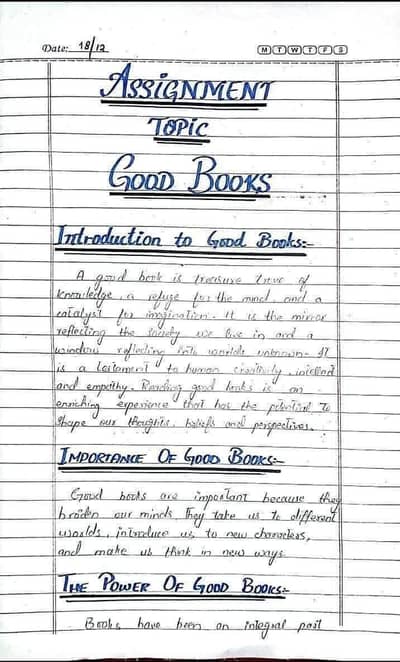 Date: 18/12 M T W T F S
ASSIGNMENT
TOPIC
GOOD BOOKS
Introduction to Good Books:-
A good book is treasure trove of
knowledge, a refuge for the mind, and a
catalyst for imagination. It is the mirror
reflecting the society we live in and a
window reflecting into worlds unknown. It
is a testament to human creativity, intellect
and empathy. Reading good books is an
enriching experience that has the potential to
shape our thoughts, beliefs and perspectives.
IMPORTANCE OF GOOD BOOKS:-
Good books are important because they
broden our minds. They take us to different
worlds, introduce us to new characters,
and make us think in new ways.
THE POWER OF GOOD BOOKS:-
Books have been an integral part